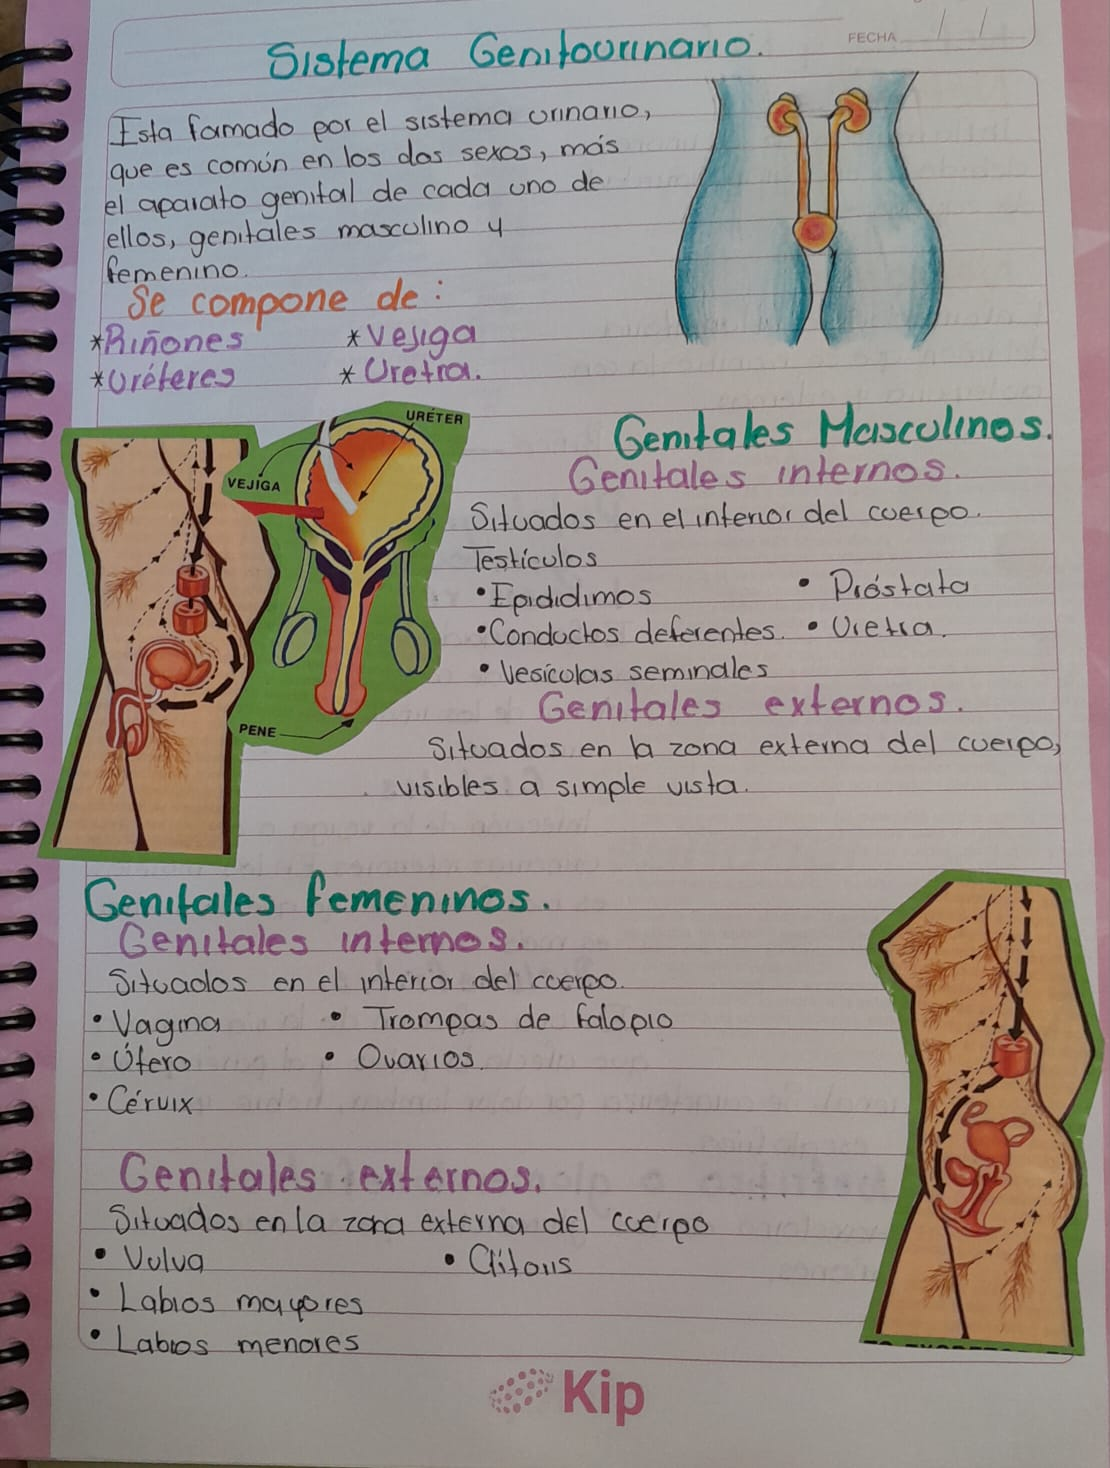 FECHA
Sistema Genitourinario.
Esta formado por el sistema urinario,
que es común en los dos sexos, más
el aparato genital de cada uno de
ellos, genitales masculino y
femenino.
Se compone de:
*Riñones *Vejiga
*Uréteres *Uretra.
URÉTER
VEJIGA
PENE
Genitales Masculinos.
Genitales internos.
Situados en el interior del cuerpo.
Testículos
•Epididimos • Próstata
•Conductos deferentes. • Uretra.
• Vesículas seminales
Genitales externos.
Situados en la zona externa del cuerpo,
visibles a simple vista.
Genitales femeninos.
Genitales internos.
Situados en el interior del cuerpo.
• Vagina • Trompas de falopio
• Útero • Ovarios.
• Cérvix
Genitales externos.
Situados en la zona externa del cuerpo
• Vulva • Clítoris
• Labios mayores
• Labios menores
Kip